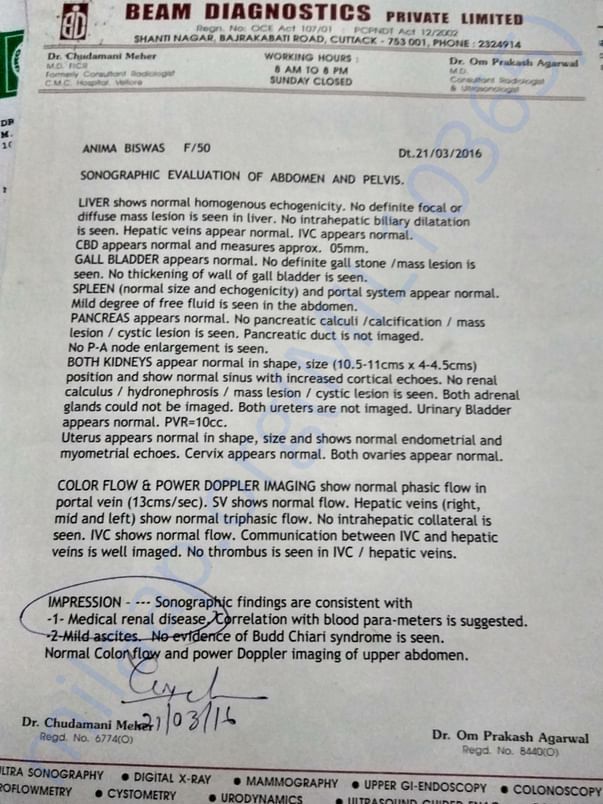 BEAM DIAGNOSTICS PRIVATE LIMITED
Regn. No: OCE Act 107/01 : PCPNDT Act 12/2002
SHANTI NAGAR, BAJRAKABATI ROAD, CUTTACK - 753 001, PHONE : 2324914
Dr. Chudamani Meher
M.D. FICR
Formerly Consultant Radiologist
C.M.C. Hospital, Vellore
WORKING HOURS :
8 AM TO 8 PM
SUNDAY CLOSED
Dr. Om Prakash Agarwal
M.D.
Consultant Radiologist
& Ultrasonologist
ANIMA BISWAS F/50 Dt.21/03/2016
SONOGRAPHIC EVALUATION OF ABDOMEN AND PELVIS.
LIVER shows normal homogenous echogenicity. No definite focal or
diffuse mass lesion is seen in liver. No intrahepatic biliary dilatation
is seen. Hepatic veins appear normal. IVC appears normal.
CBD appears normal and measures approx. 05mm.
GALL BLADDER appears normal. No definite gall stone /mass lesion is
seen. No thickening of wall of gall bladder is seen.
SPLEEN (normal size and echogenicity) and portal system appear normal.
Mild degree of free fluid is seen in the abdomen.
PANCREAS appears normal. No pancreatic calculi /calcification / mass
lesion / cystic lesion is seen. Pancreatic duct is not imaged.
No P-A node enlargement is seen.
BOTH KIDNEYS appear normal in shape, size (10.5-11cms x 4-4.5cms)
position and show normal sinus with increased cortical echoes. No renal
calculus / hydronephrosis / mass lesion / cystic lesion is seen. Both adrenal
glands could not be imaged. Both ureters are not imaged. Urinary Bladder
appears normal. PVR=10cc.
Uterus appears normal in shape, size and shows normal endometrial and
myometrial echoes. Cervix appears normal. Both ovaries appear normal.
COLOR FLOW & POWER DOPPLER IMAGING show normal phasic flow in
portal vein (13cms/sec). SV shows normal flow. Hepatic veins (right,
mid and left) show normal triphasic flow. No intrahepatic collateral is
seen. IVC shows normal flow. Communication between IVC and hepatic
veins is well imaged. No thrombus is seen in IVC / hepatic veins.
IMPRESSION - --- Sonographic findings are consistent with
-1- Medical renal disease, Correlation with blood para-meters is suggested.
-2-Mild ascites. No evidence of Budd Chiari syndrome is seen.
Normal Color flow and power Doppler imaging of upper abdomen.
21/03/16
Dr. Chudamani Meher
Regd. No. 6774(O)
Dr. Om Prakash Agarwal
Regd. No. 8440(O)
ULTRA SONOGRAPHY • DIGITAL X-RAY • MAMMOGRAPHY • UPPER GI-ENDOSCOPY • COLONOSCOPY
• CYSTOMETRY • URODYNAMICS